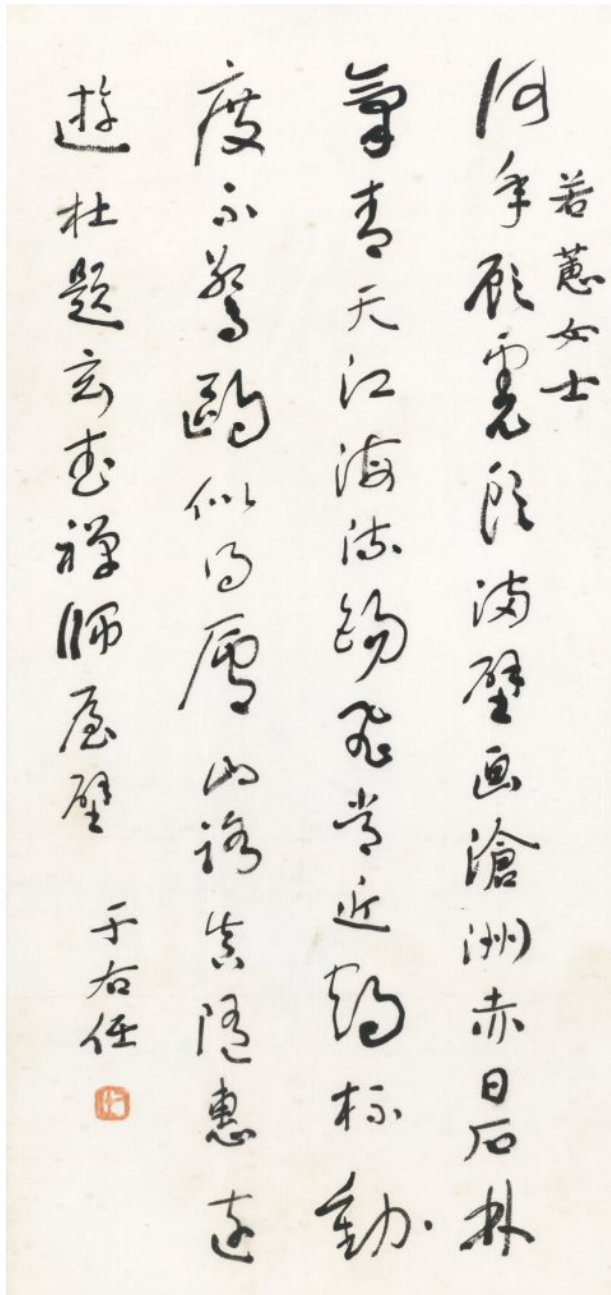 若蕙女士
何年顧虎頭滿壁画滄洲赤日石林
氣青天江海流錫飛常近鶴杯動
度不驚鷗似得廬山路真隨惠遠
遊杜題玄武禪師屋壁
于右任